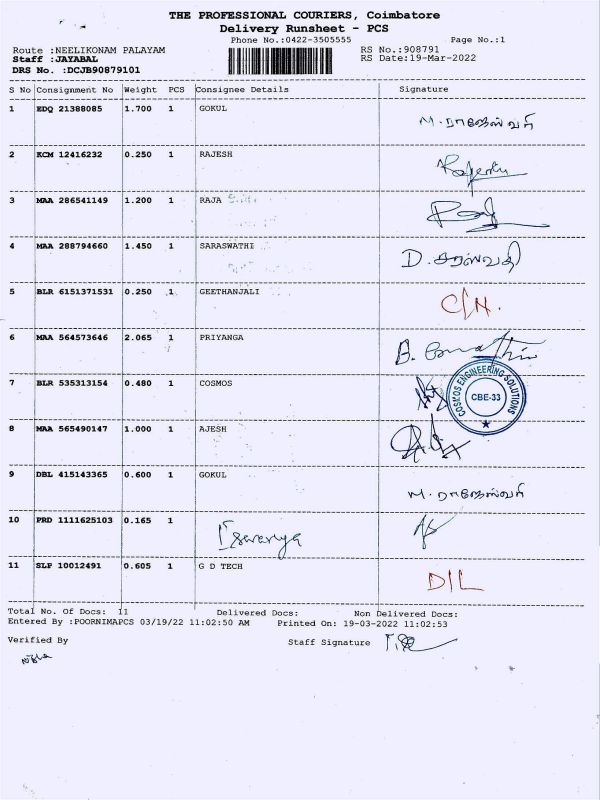 THE PROFESSIONAL COURIERS, Coimbatore
Delivery Runsheet - PCS
Phone No.:0422-3505555 Page No.:1
Route :NEELIKONAM PALAYAM RS No.:908791
Staff :JAYABAL RS Date:19-Mar-2022
DRS No. :DCJB90879101
S No Consignment No Weight PCS Consignee Details Signature
1 EDQ 21388085 1.700 1 GOKUL M. ராஜேஸ்வரி
2 KCM 12416232 0.250 1 RAJESH
3 MAA 286541149 1.200 1 RAJA
4 MAA 288794660 1.450 1 SARASWATHI D. சரஸ்வதி
5 BLR 6151371531 0.250 1 GEETHANJALI C/N.
6 MAA 564573646 2.065 1 PRIYANGA
7 BLR 535313154 0.480 1 COSMOS COSKOS ENGINEERING SOLUTIONS CBE-33
8 MAA 565490147 1.000 1 AJESH
9 DBL 415143365 0.600 1 GOKUL M. ராஜேஸ்வரி
10 PRD 1111625103 0.165 1
11 SLP 10012491 0.605 1 G D TECH D/L
Total No. Of Docs: 11 Delivered Docs: Non Delivered Docs:
Entered By :POORNIMAPCS 03/19/22 11:02:50 AM Printed On: 19-03-2022 11:02:53
Verified By Staff Signature